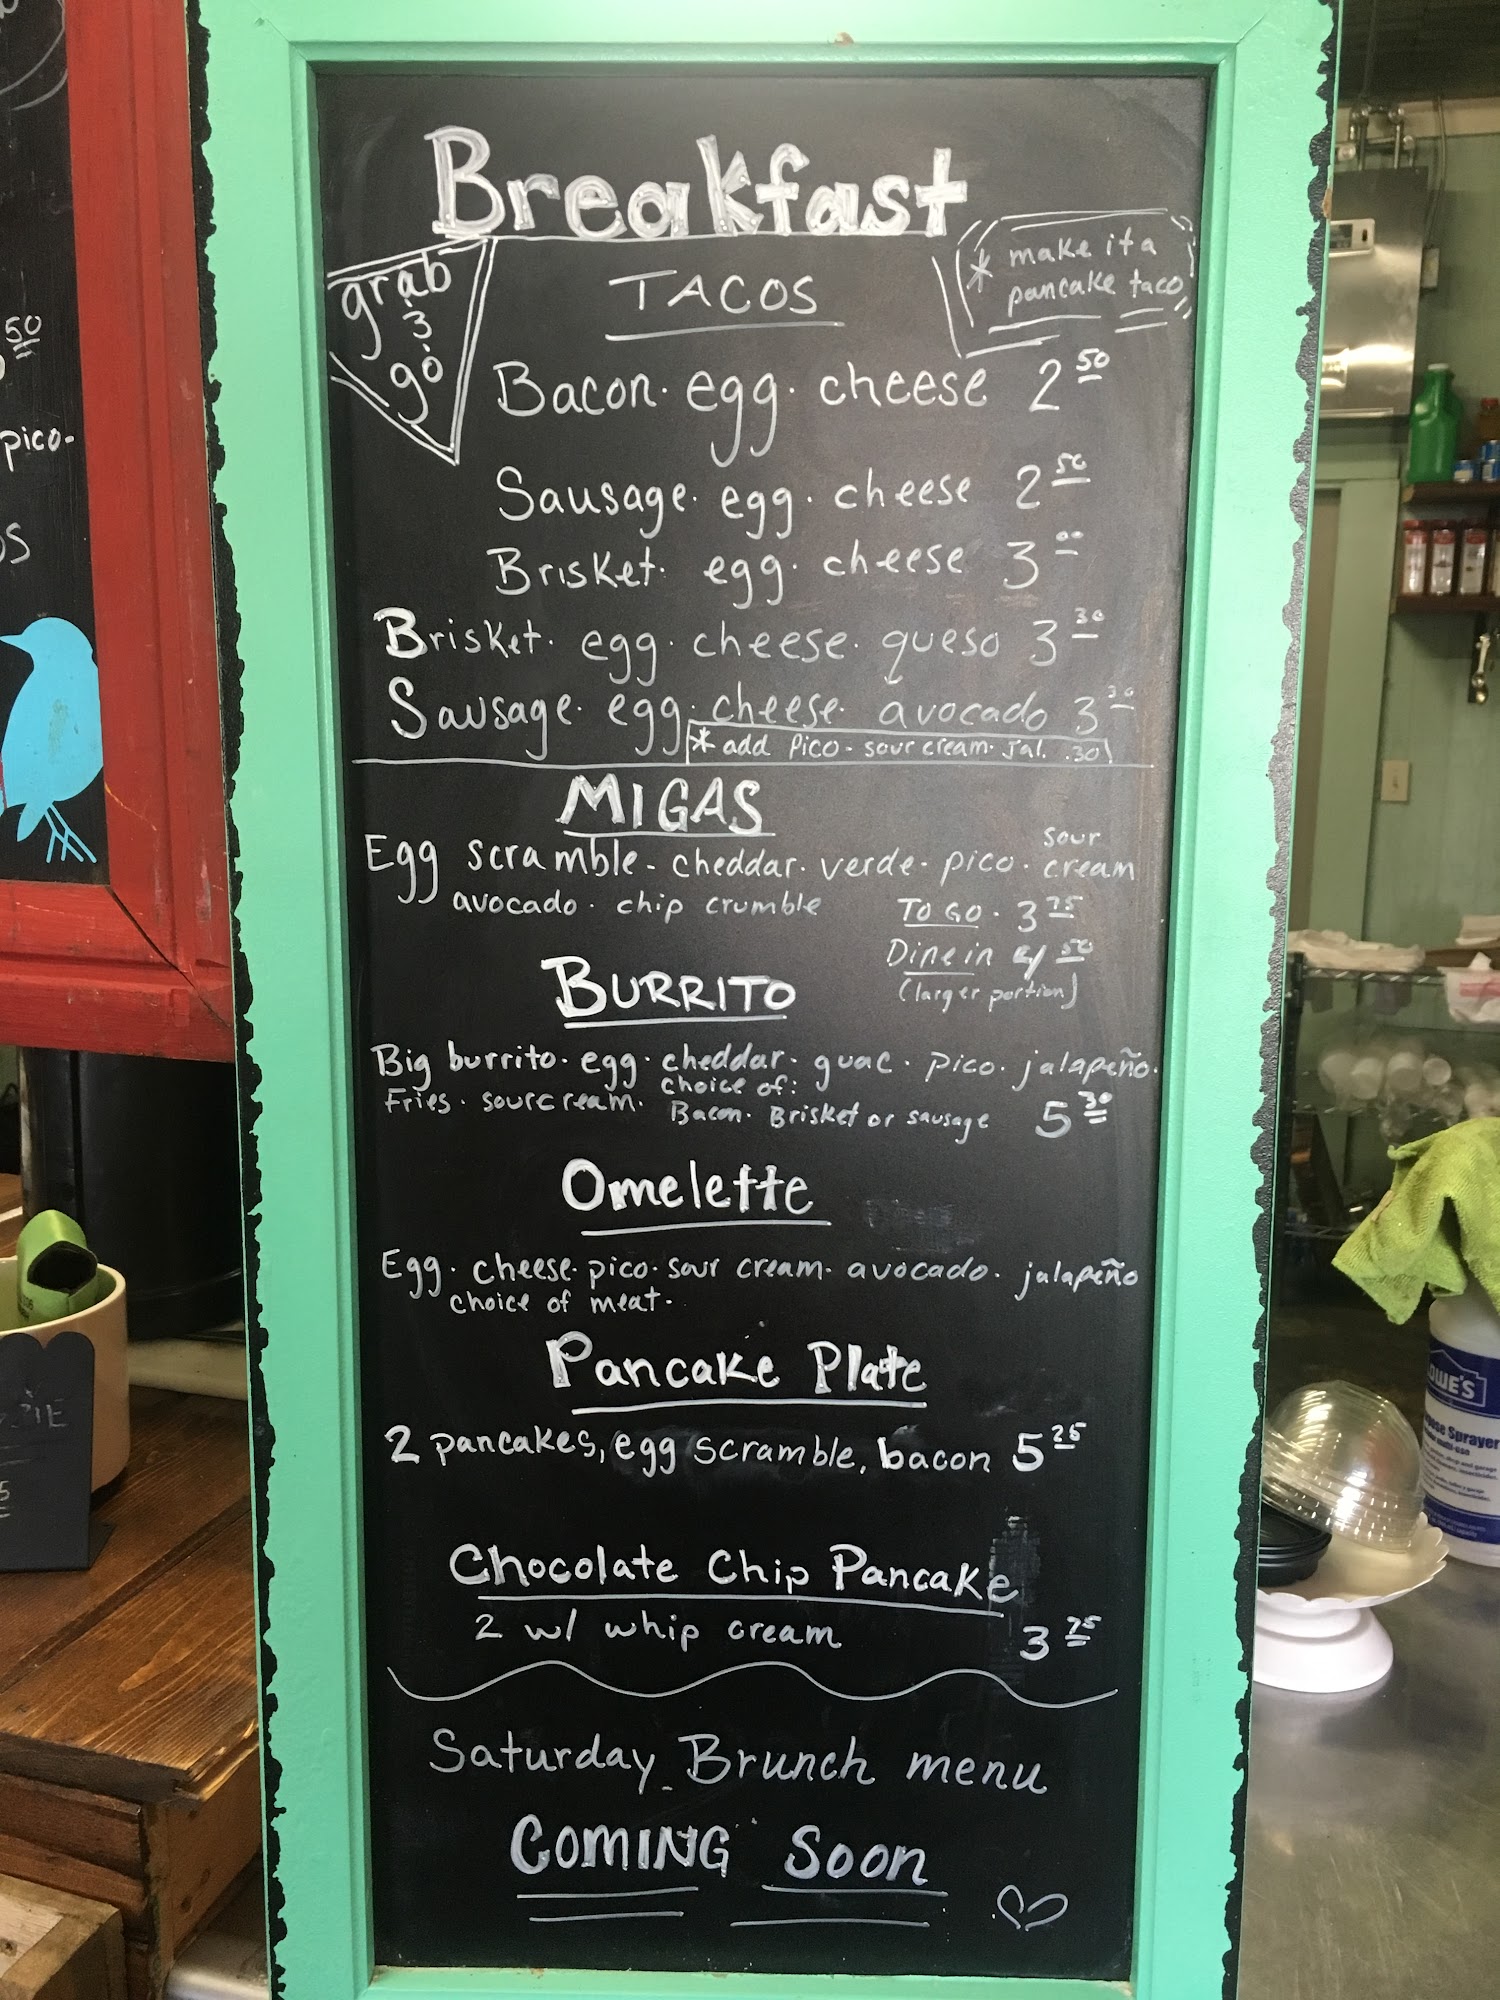 Breakfast
grab
&
go
TACOS
* make it a
pancake taco
Bacon · egg · cheese 2 50
Sausage · egg · cheese 2 50
Brisket · egg · cheese 3 00
Brisket · egg · cheese · queso 3 30
Sausage · egg · cheese · avocado 3 30
* add Pico - sour cream · jal. .30
MIGAS
Egg scramble - cheddar · verde · pico · sour cream
avocado · chip crumble
TO GO · 3 75
Dine in 4 50
(larger portion)
BURRITO
Big burrito · egg · cheddar · guac · pico · jalapeño ·
Fries · sour cream · choice of:
Bacon · Brisket or sausage 5 30
Omelette
Egg · cheese · pico · sour cream · avocado · jalapeño
choice of meat ·
Pancake Plate
2 pancakes, egg scramble, bacon 5 25
Chocolate Chip Pancake
2 w/ whip cream 3 75
Saturday Brunch menu
COMING Soon
50
pico -
OS
ZIE
5
LOWE'S
Sprayer